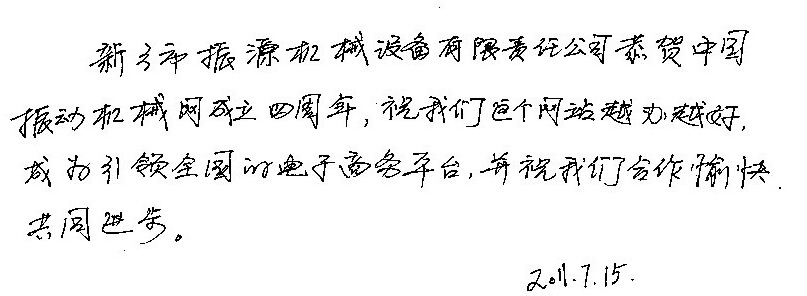 新乡市振源机械设备有限责任公司恭贺中国
振动机械网成立四周年，祝我们这个网站越办越好，
成为引领全国的电子商务平台，并祝我们合作愉快，
共同进步。
2011.7.15.